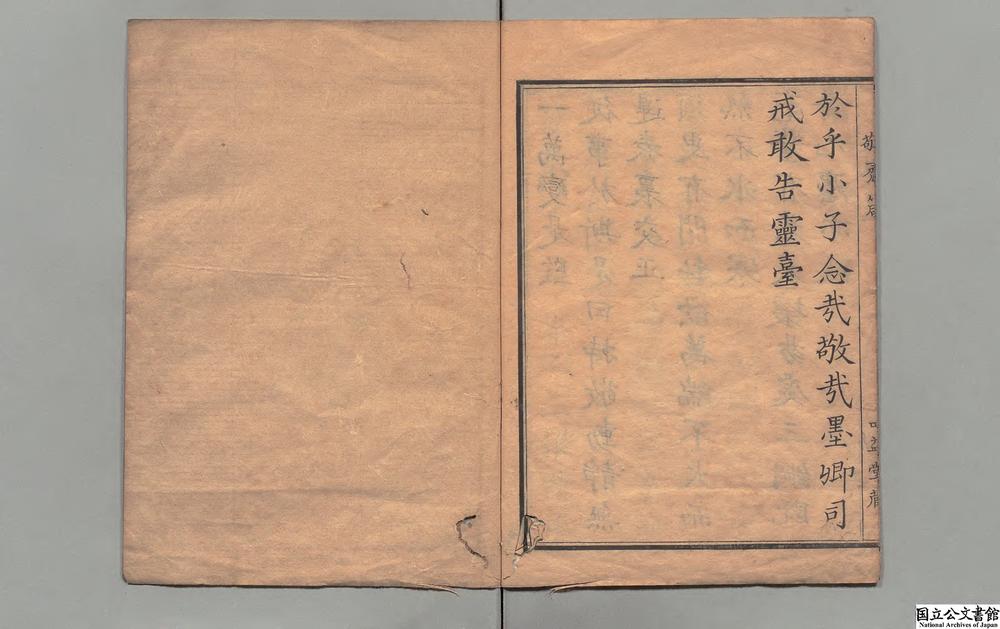 敬齋箴
於乎小子念㢤敬㢤墨卿司
戒敢告靈臺
益堂藏
国立公文書館
National Archives of Japan